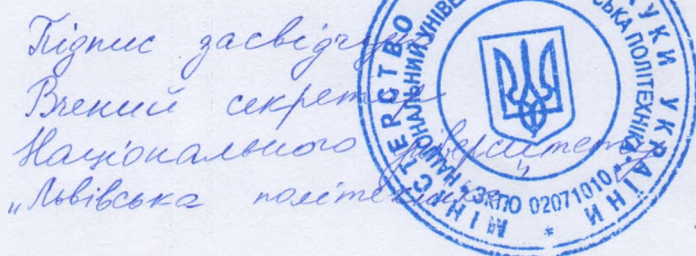 Підпис засвідчую
Вчений секретар
Національного університету
„Львівська політехніка"
МІНІСТЕРСТВО
НАУКИ УКРАЇНИ *
НАЦІОНАЛЬНИЙ УНІВЕ
СЬКА ПОЛІТЕХНІКА
ЗКПО 02071010